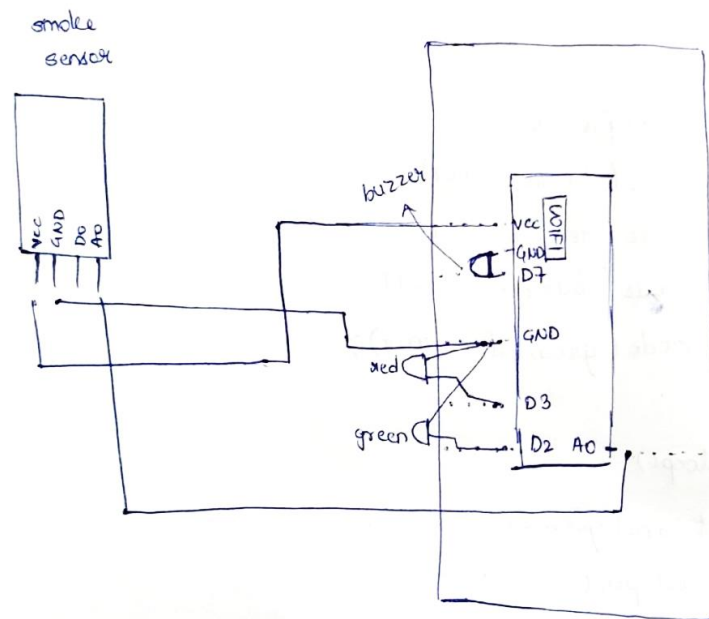 smoke
sensor
VCC
GND
D0
A0
buzzer
WIFI
VCC
GND
D7
GND
red
D3
green
D2 A0